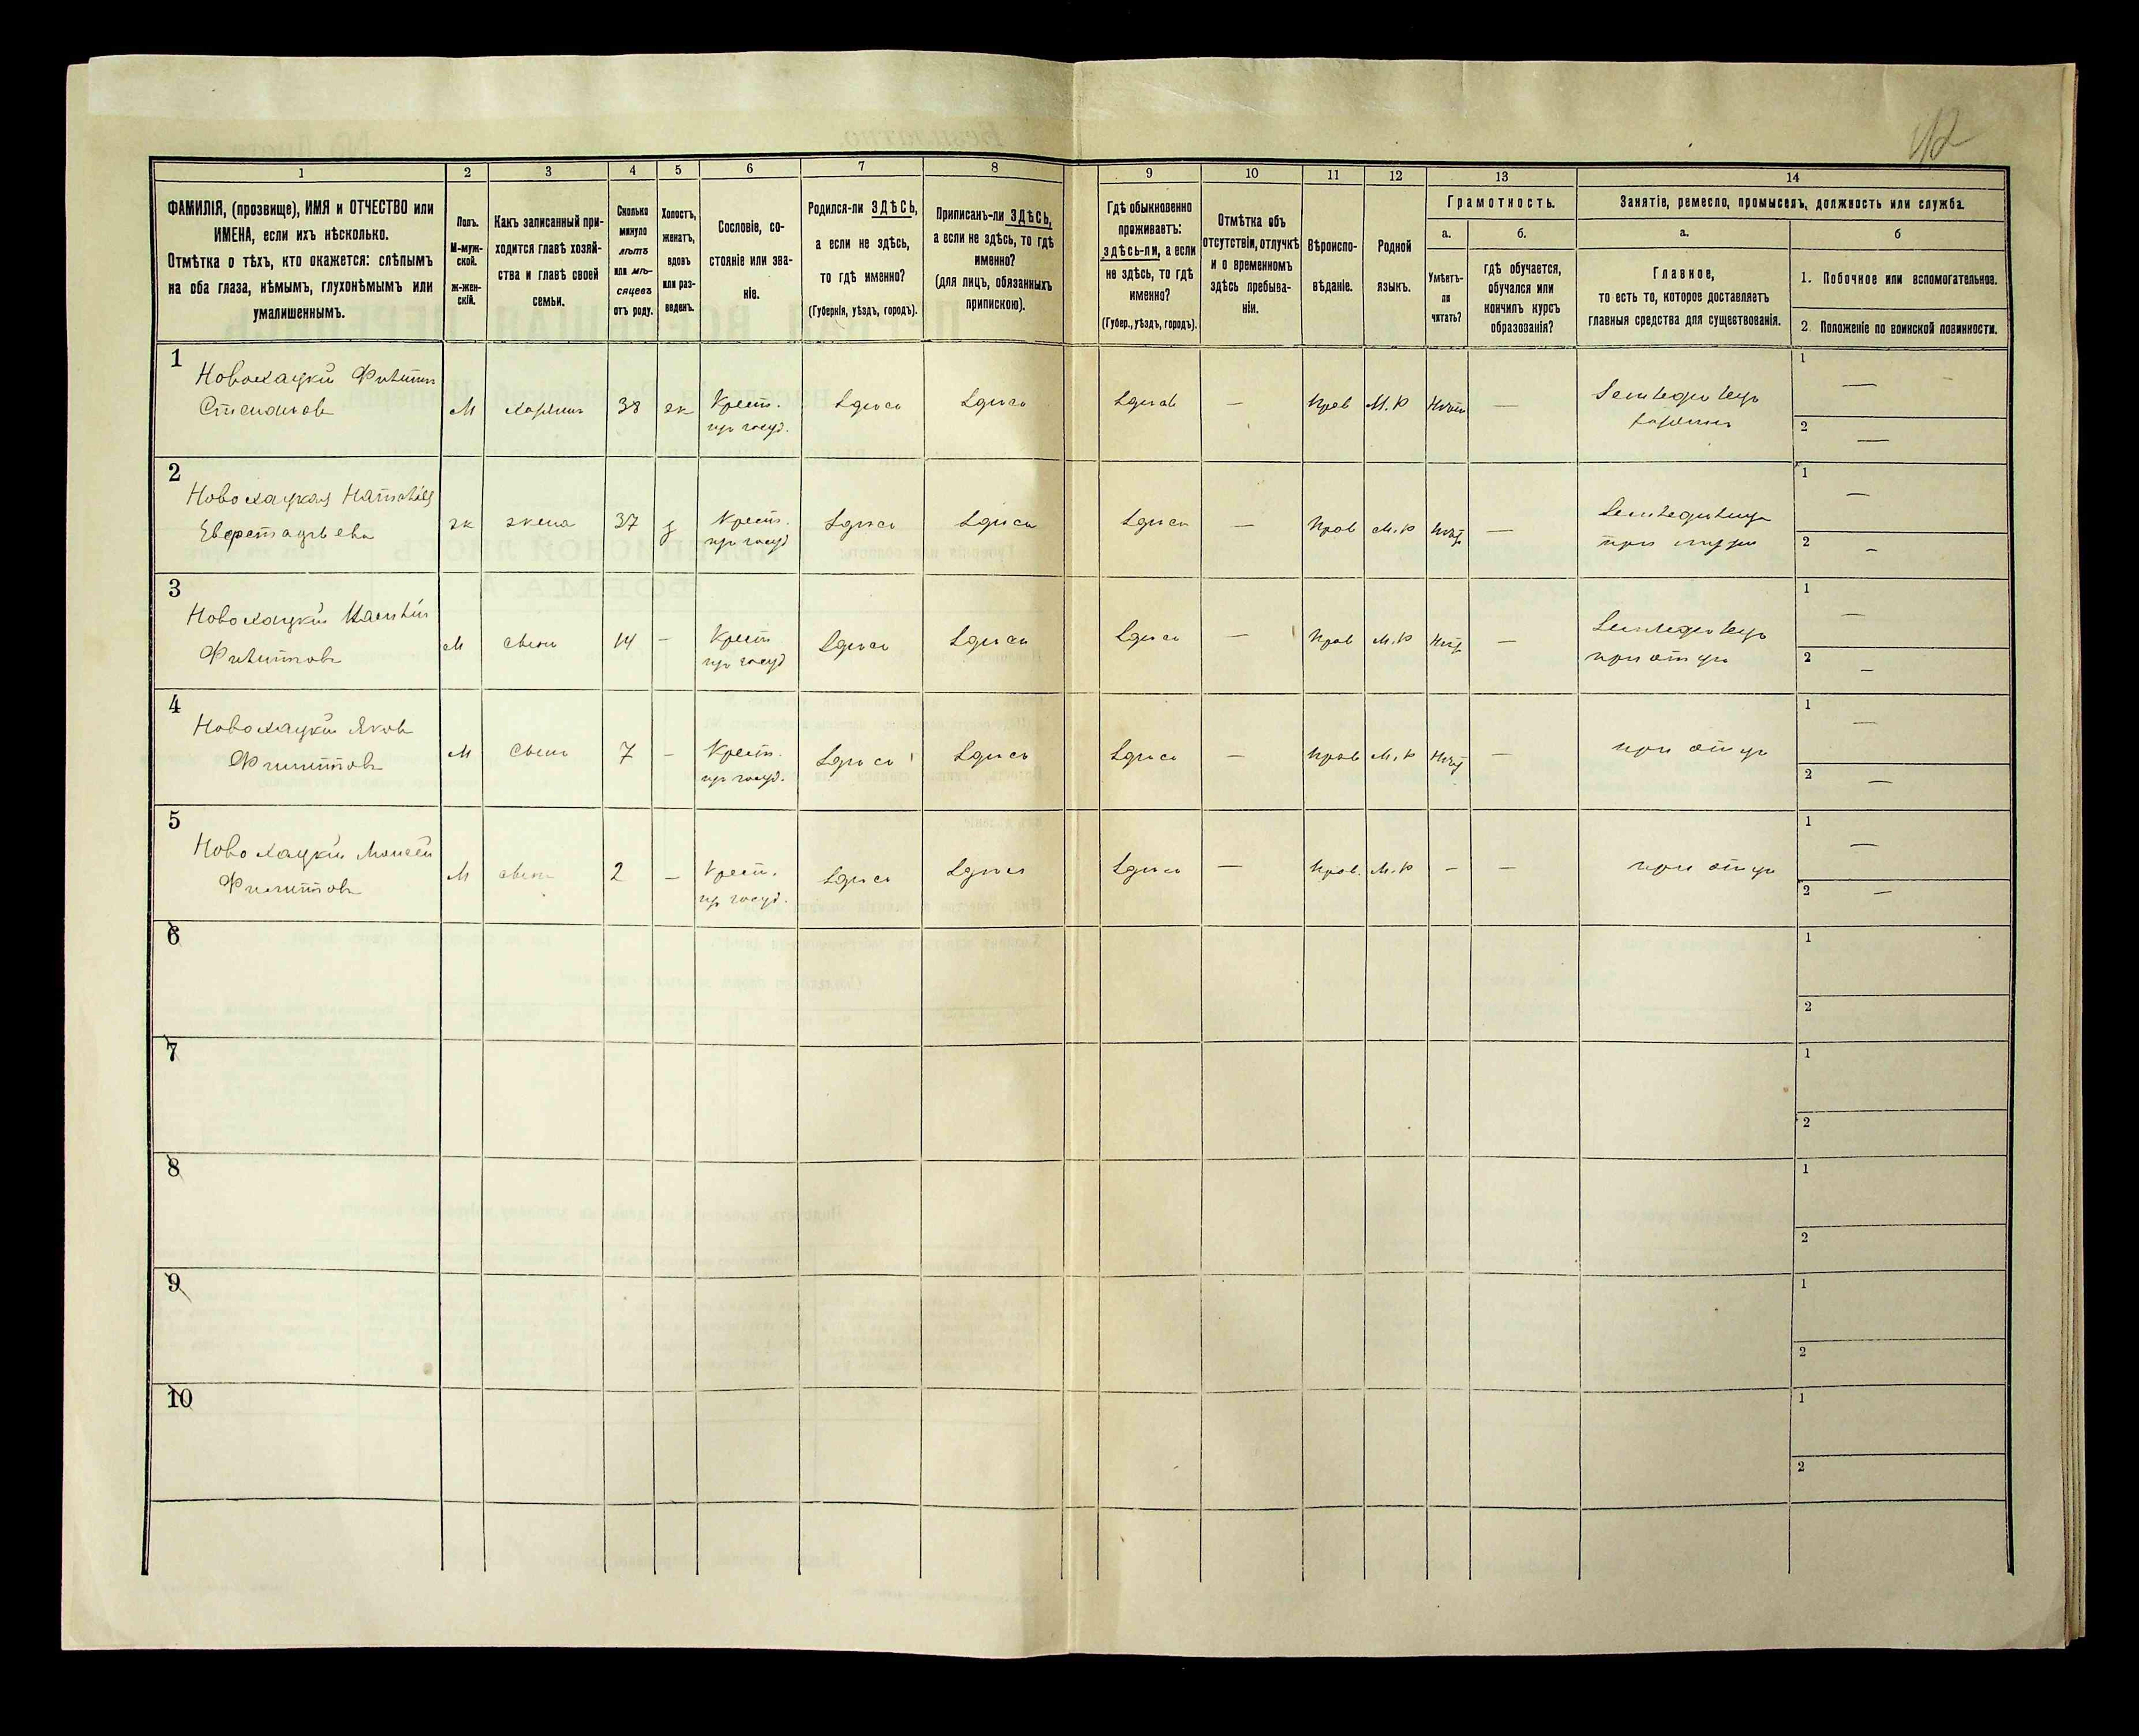 42
1 2 3 4 5 6 7 8 9 10 11 12 13 14
ФАМИЛІЯ, (прозвище), ИМЯ и ОТЧЕСТВО или
ИМЕНА, если ихъ нѣсколько.
Отмѣтка о тѣхъ, кто окажется: слѣпымъ
на оба глаза, нѣмымъ, глухонѣмымъ или
умалишеннымъ.
Полъ.
М-муж-
ской.
ж-жен-
скій.
Какъ записанный при-
ходится главѣ хозяй-
ства и главѣ своей
семьи.
Сколько
минуло
лѣтъ
или мѣ-
сяцевъ
отъ роду.
Холостъ,
женатъ,
вдовъ
или раз-
веденъ.
Сословіе, со-
стояніе или зва-
ніе.
Родился-ли ЗДѢСЬ,
а если не здѣсь,
то гдѣ именно?
(Губернія, уѣздъ, городъ).
Приписанъ-ли ЗДѢСЬ,
а если не здѣсь, то гдѣ
именно?
(для лицъ, обязанныхъ
припискою).
Гдѣ обыкновенно
проживаетъ:
здѣсь-ли, а если
не здѣсь, то гдѣ
именно?
(Губер., уѣздъ, городъ).
Отмѣтка объ
отсутствіи, отлучкѣ
и о временномъ
здѣсь пребыва-
ніи.
Вѣроиспо-
вѣданіе.
Родной
языкъ.
Грамотность.
а.
Умѣетъ-
ли
читать?
б.
гдѣ обучается,
обучался или
кончилъ курсъ
образованія?
Занятіе, ремесло, промыселъ, должность или служба.
а.
Главное,
то есть то, которое доставляетъ
главныя средства для существованія.
б
1. Побочное или вспомогательное.
2. Положеніе по воинской повинности.
1
Новохацкій Филиппъ
М хозяинъ 38 ж Крест. Здѣсь Здѣсь Здѣсь — Прав М.Р Нѣтъ — Земледѣлецъ
пр госуд. хозяинъ
1 —
2 —
2
Новохацкая Наталія
Евстафьевна
ж жена 37 з Крест. Здѣсь Здѣсь Здѣсь — Прав М.Р Нѣт — Земледѣлецъ
пр госуд при мужѣ
1 —
2 —
3
Новохацкій
Филипповъ
М сынъ 14 - Крест Здѣсь Здѣсь Здѣсь — Прав М.Р Нѣт — Земледѣлецъ
пр госуд при отцѣ
1 —
2 —
4
Новохацкій Яковъ
Филипповъ
М сынъ 7 - Крест. Здѣсь Здѣсь Здѣсь — Прав М.Р Нѣт — при отцѣ
пр госуд.
1 —
2 —
5
Новохацкій Моисей
Филипповъ
М сынъ 2 - Крест. Здѣсь Здѣсь Здѣсь — Прав. М.Р - - при отцѣ
пр госуд.
1 —
2 —
6
1
2
7
1
2
8
1
2
9
1
2
10
1
2